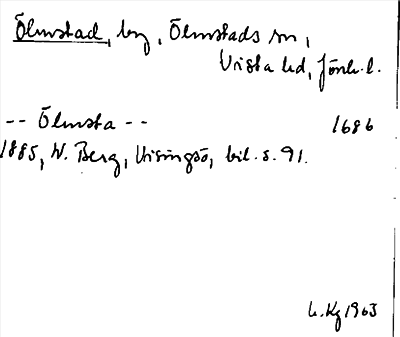 Ölmstad, by, Ölmstads sn,
Vista hd, Jönk. l.
-- Ölmsta -- 1686
1885, W. Berg, Visingsö, bil. s. 91.
L. Kg 1963